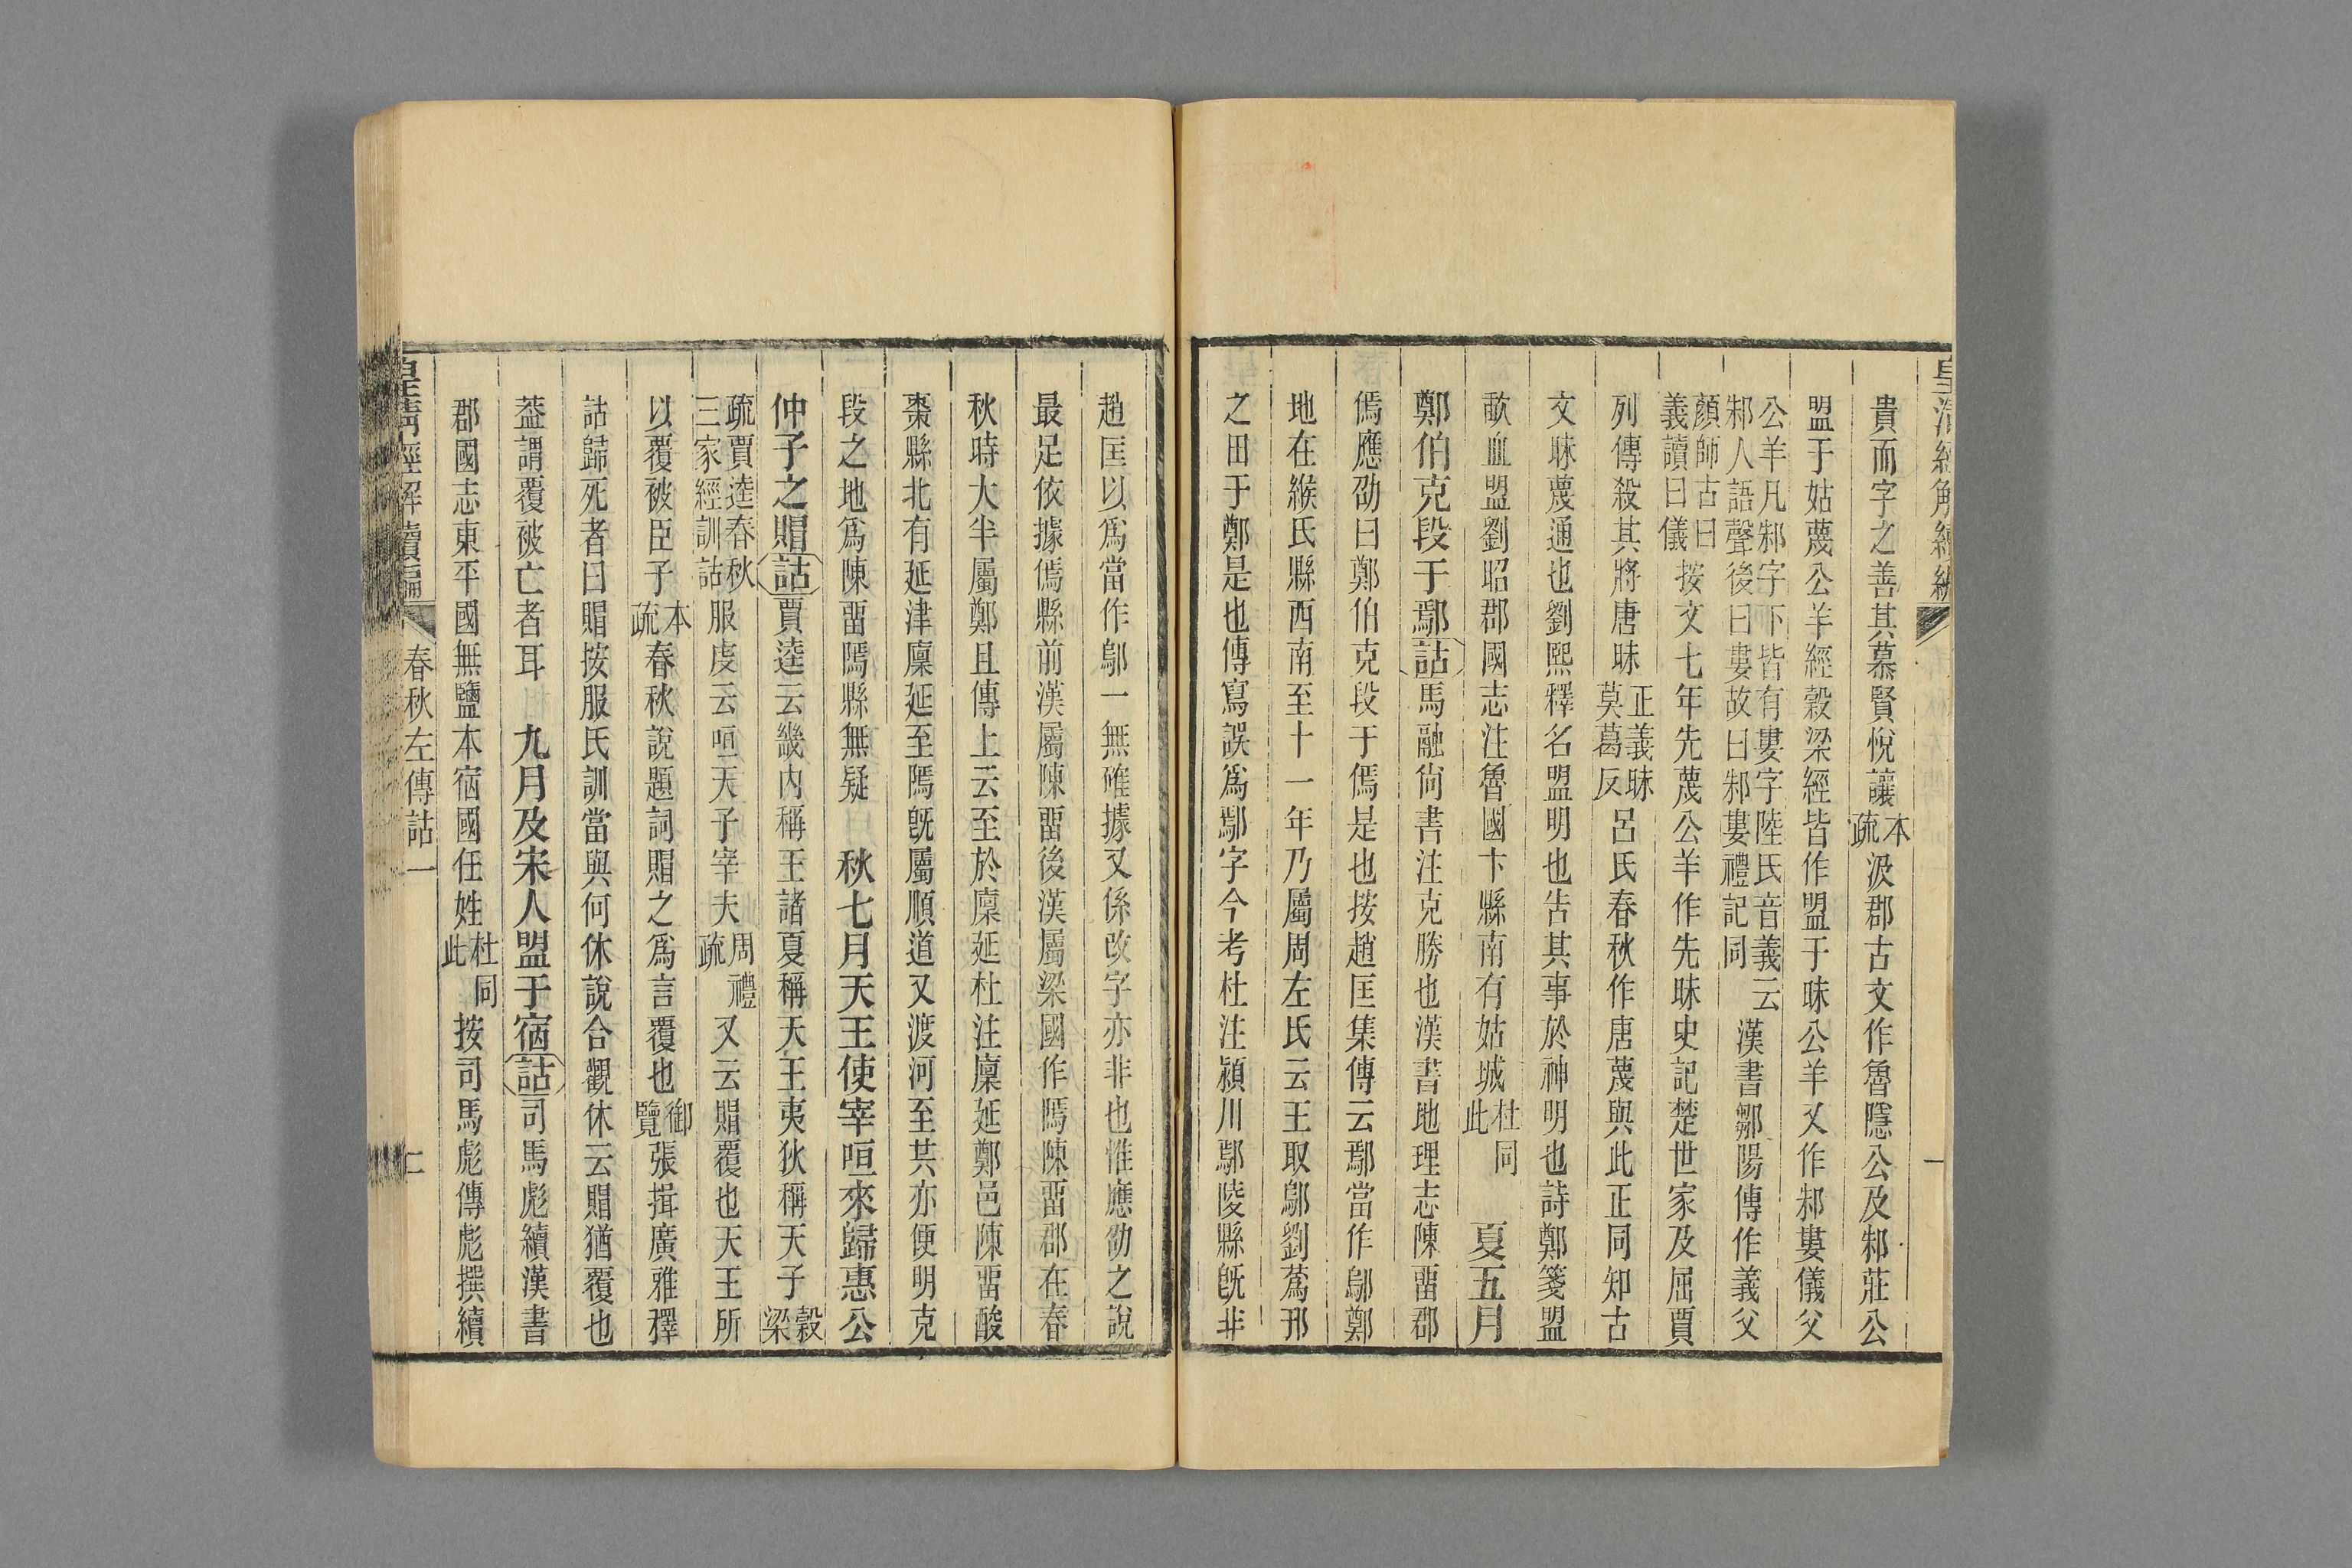 皇清經解續編
一
貴而字之善其慕賢悅讓本疏汲郡古文作魯隱公及邾莊公
盟于姑蔑公羊經穀梁經皆作盟于昧公羊又作邾婁儀父
公羊凡邾字下皆有婁字陸氏音義云邾人語聲後曰婁故曰邾婁禮記同漢書鄒陽傳作義父
顏師古曰義讀曰儀按文七年先蔑公羊作先昧史記楚世家及屈賈
列傳殺其將唐昧正義昧莫葛反呂氏春秋作唐蔑與此正同知古
文昧蔑通也劉熙釋名盟明也告其事於神明也詩鄭箋盟
歃血盟劉昭郡國志注魯國卞縣南有姑城杜同此 夏五月
鄭伯克段于鄢詁馬融尙書注克勝也漢書地理志陳畱郡
傿應劭曰鄭伯克段于傿是也按趙匡集傳云鄢當作鄔鄭
地在緱氏縣西南至十一年乃屬周左氏云王取鄔劉蔿邘
之田于鄭是也傳寫誤爲鄢字今考杜注潁川鄢陵縣旣非
趙匡以爲當作鄔一無確據又係改字亦非也惟應劭之說
最足依據傿縣前漢屬陳畱後漢屬梁國作隝陳畱郡在春
秋時大半屬鄭且傳上云至於廩延杜注廩延鄭邑陳畱酸
棗縣北有延津廩延至隝旣屬順道又渡河至共亦便明克
段之地爲陳畱隝縣無疑 秋七月天王使宰咺來歸惠公
仲子之賵詁賈逵云畿內稱王諸夏稱天王夷狄稱天子穀梁
疏賈逵春秋三家經訓詁服虔云咺天子宰夫周禮疏又云賵覆也天王所
以覆被臣子本疏春秋說題詞賵之爲言覆也御覽張揖廣雅釋
詁歸死者曰賵按服氏訓當與何休說合觀休云賵猶覆也
葢謂覆被亡者耳 九月及宋人盟于宿詁司馬彪續漢書
郡國志東平國無鹽本宿國任姓杜同此按司馬彪傳彪撰續
皇淸經解續編 春秋左傳詁一 二